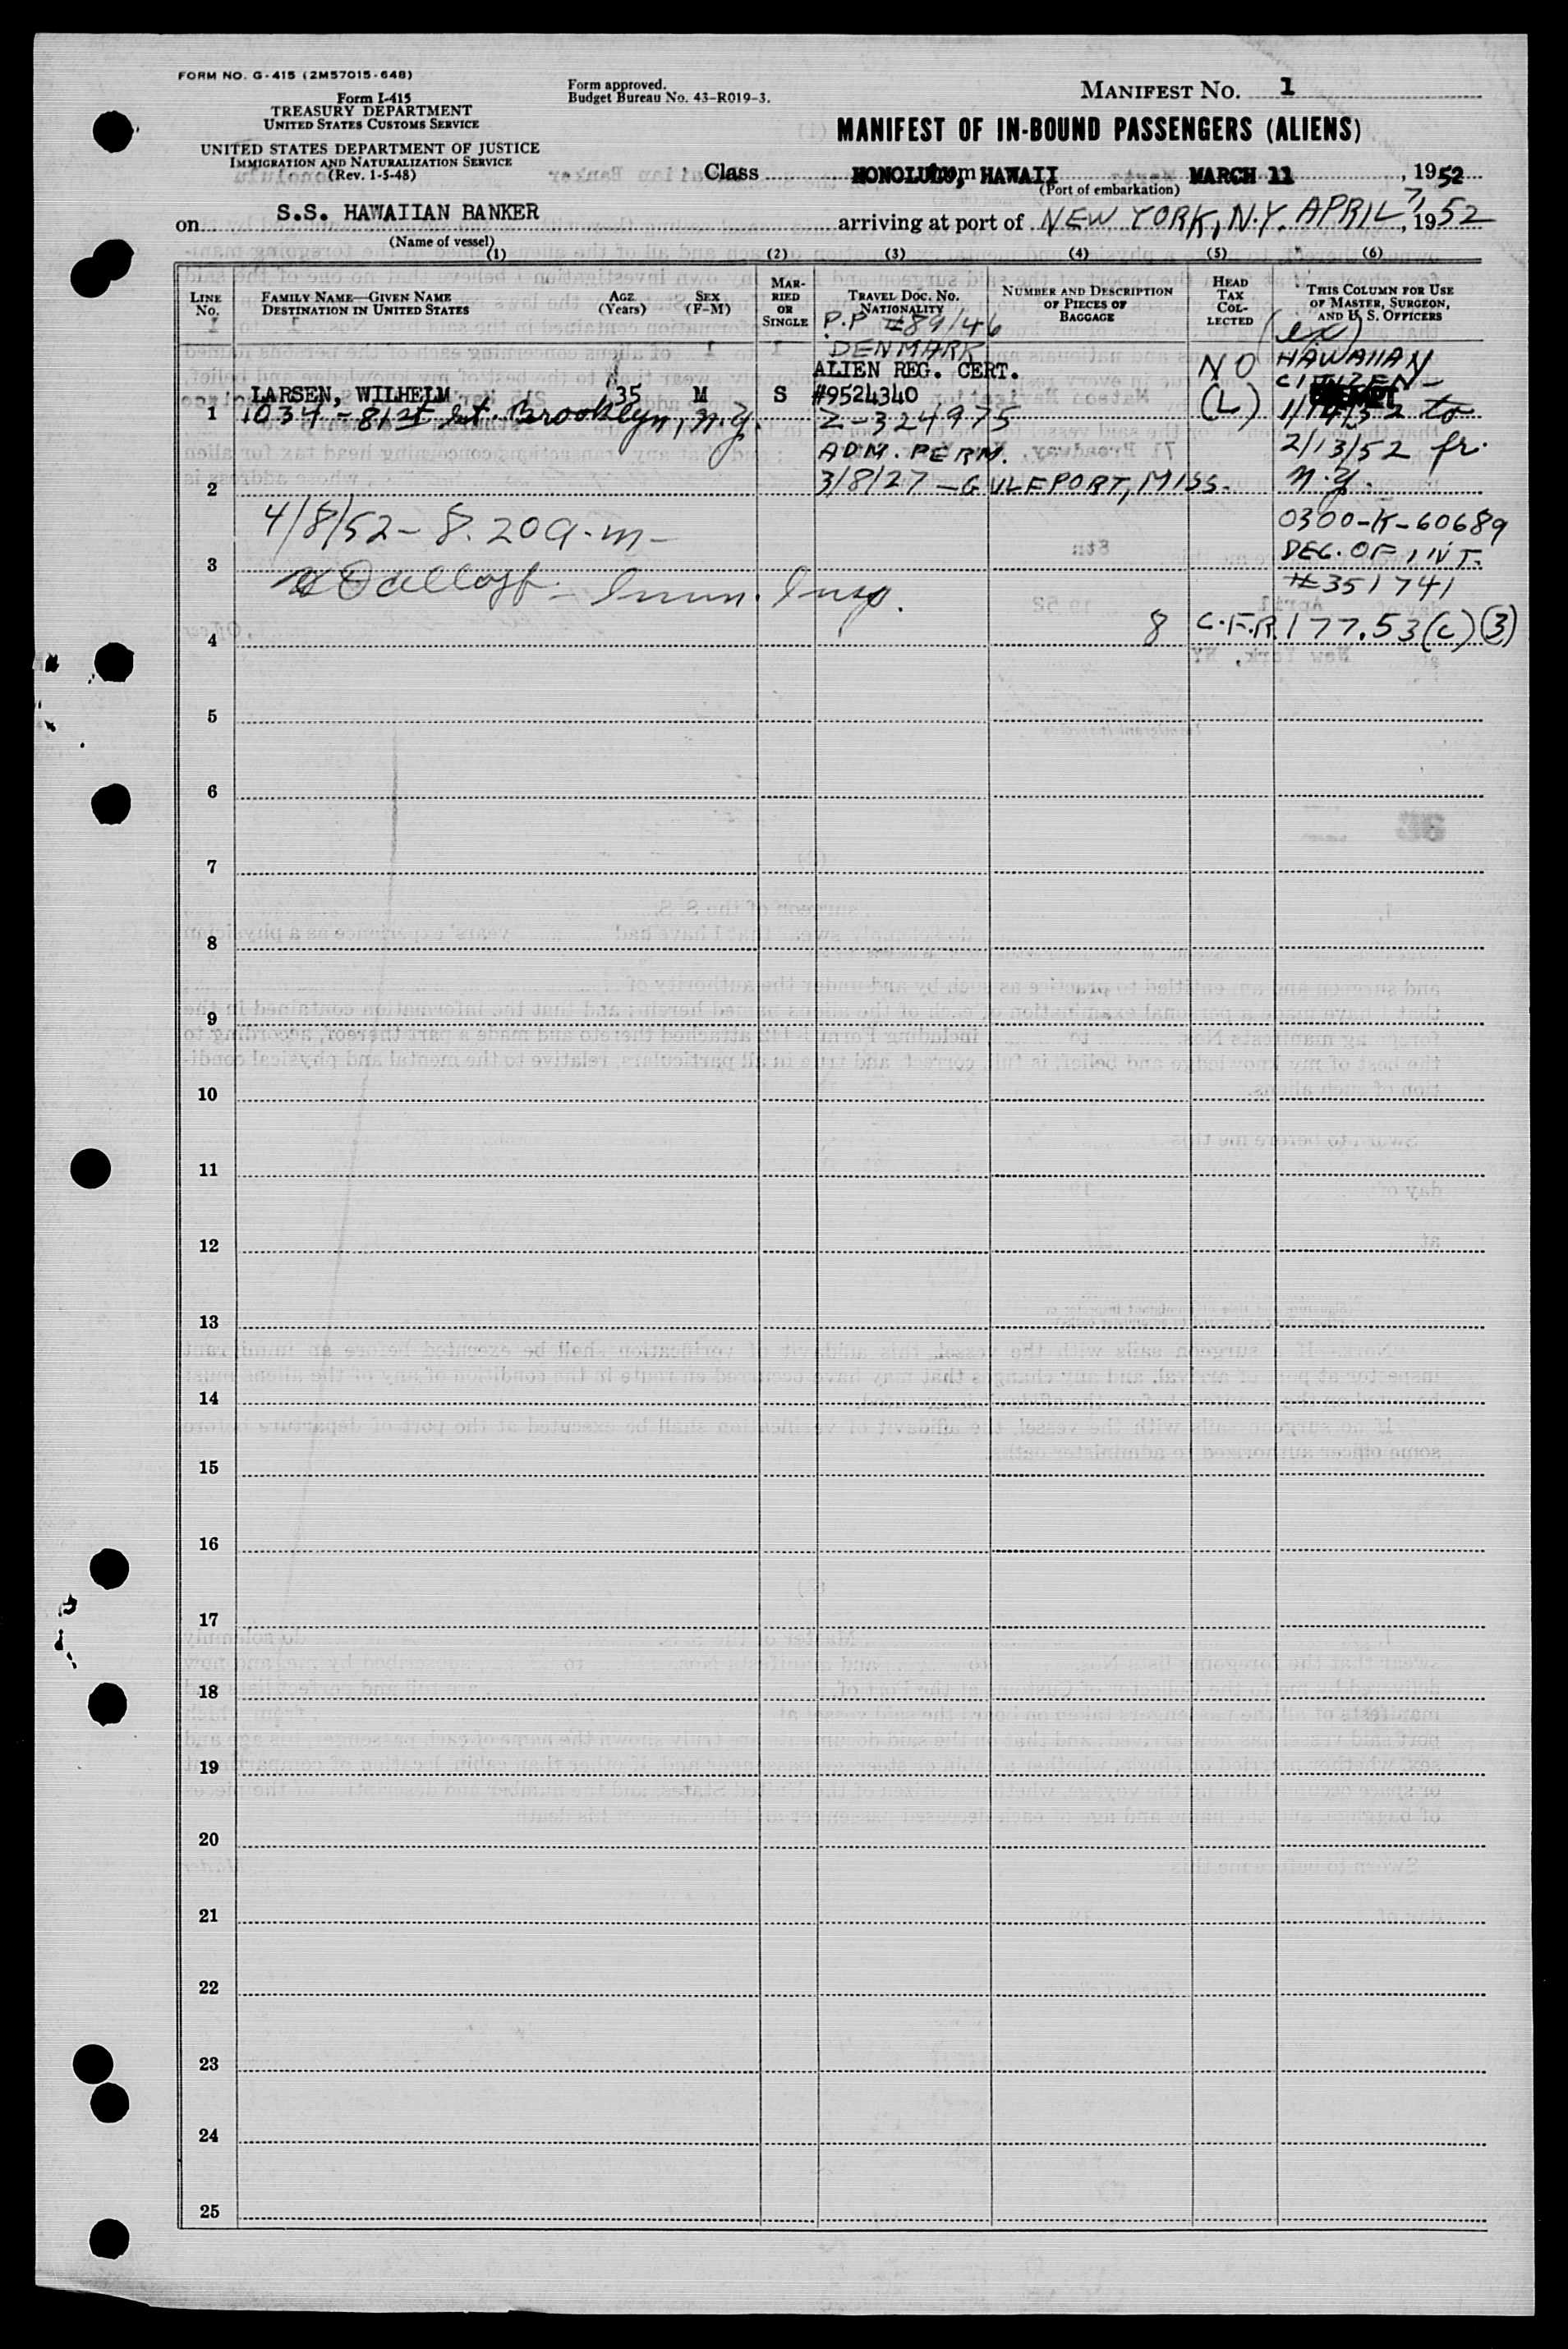 FORM NO. G-415 (2M57015-648)
Form I-415
TREASURY DEPARTMENT
UNITED STATES CUSTOMS SERVICE
UNITED STATES DEPARTMENT OF JUSTICE
IMMIGRATION AND NATURALIZATION SERVICE
(Rev. 1-5-48)
Form approved.
Budget Bureau No. 43-R019-3.
MANIFEST NO. 1
MANIFEST OF IN-BOUND PASSENGERS (ALIENS)
Class from HONOLULU, HAWAII MARCH 11, 1952
(Port of embarkation)
on S.S. HAWAIIAN BANKER arriving at port of NEW YORK, N.Y. APRIL 7, 1952
(Name of vessel)
(1) (2) (3) (4) (5) (6)
LINE No.
FAMILY NAME—GIVEN NAME
DESTINATION IN UNITED STATES
AGE (Years)
SEX (F-M)
MARRIED OR SINGLE
TRAVEL DOC. NO.
NATIONALITY
NUMBER AND DESCRIPTION OF PIECES OF BAGGAGE
HEAD TAX COLLECTED
THIS COLUMN FOR USE OF MASTER, SURGEON, AND U. S. OFFICERS
P.P #89/46
DENMARK
ALIEN REG. CERT.
LARSEN, WILHELM 35 M S #9524340
1 1034 - 81st St. Brooklyn, N.Y. Z-324975
ADM. PERM.
3/8/27 - GULFPORT, MISS.
NO
(L)
(ex)
HAWAIIAN
CITIZEN -
1/14/52 to
2/13/52 fr.
N.Y.
0300-K-60689
DEC. OF INT.
#351741
8 C.F.R. 177.53(c)(3)
2
4/8/52 - 8.20 a.m -
3
Imm. Insp.
4
5
6
7
8
9
10
11
12
13
14
15
16
17
18
19
20
21
22
23
24
25